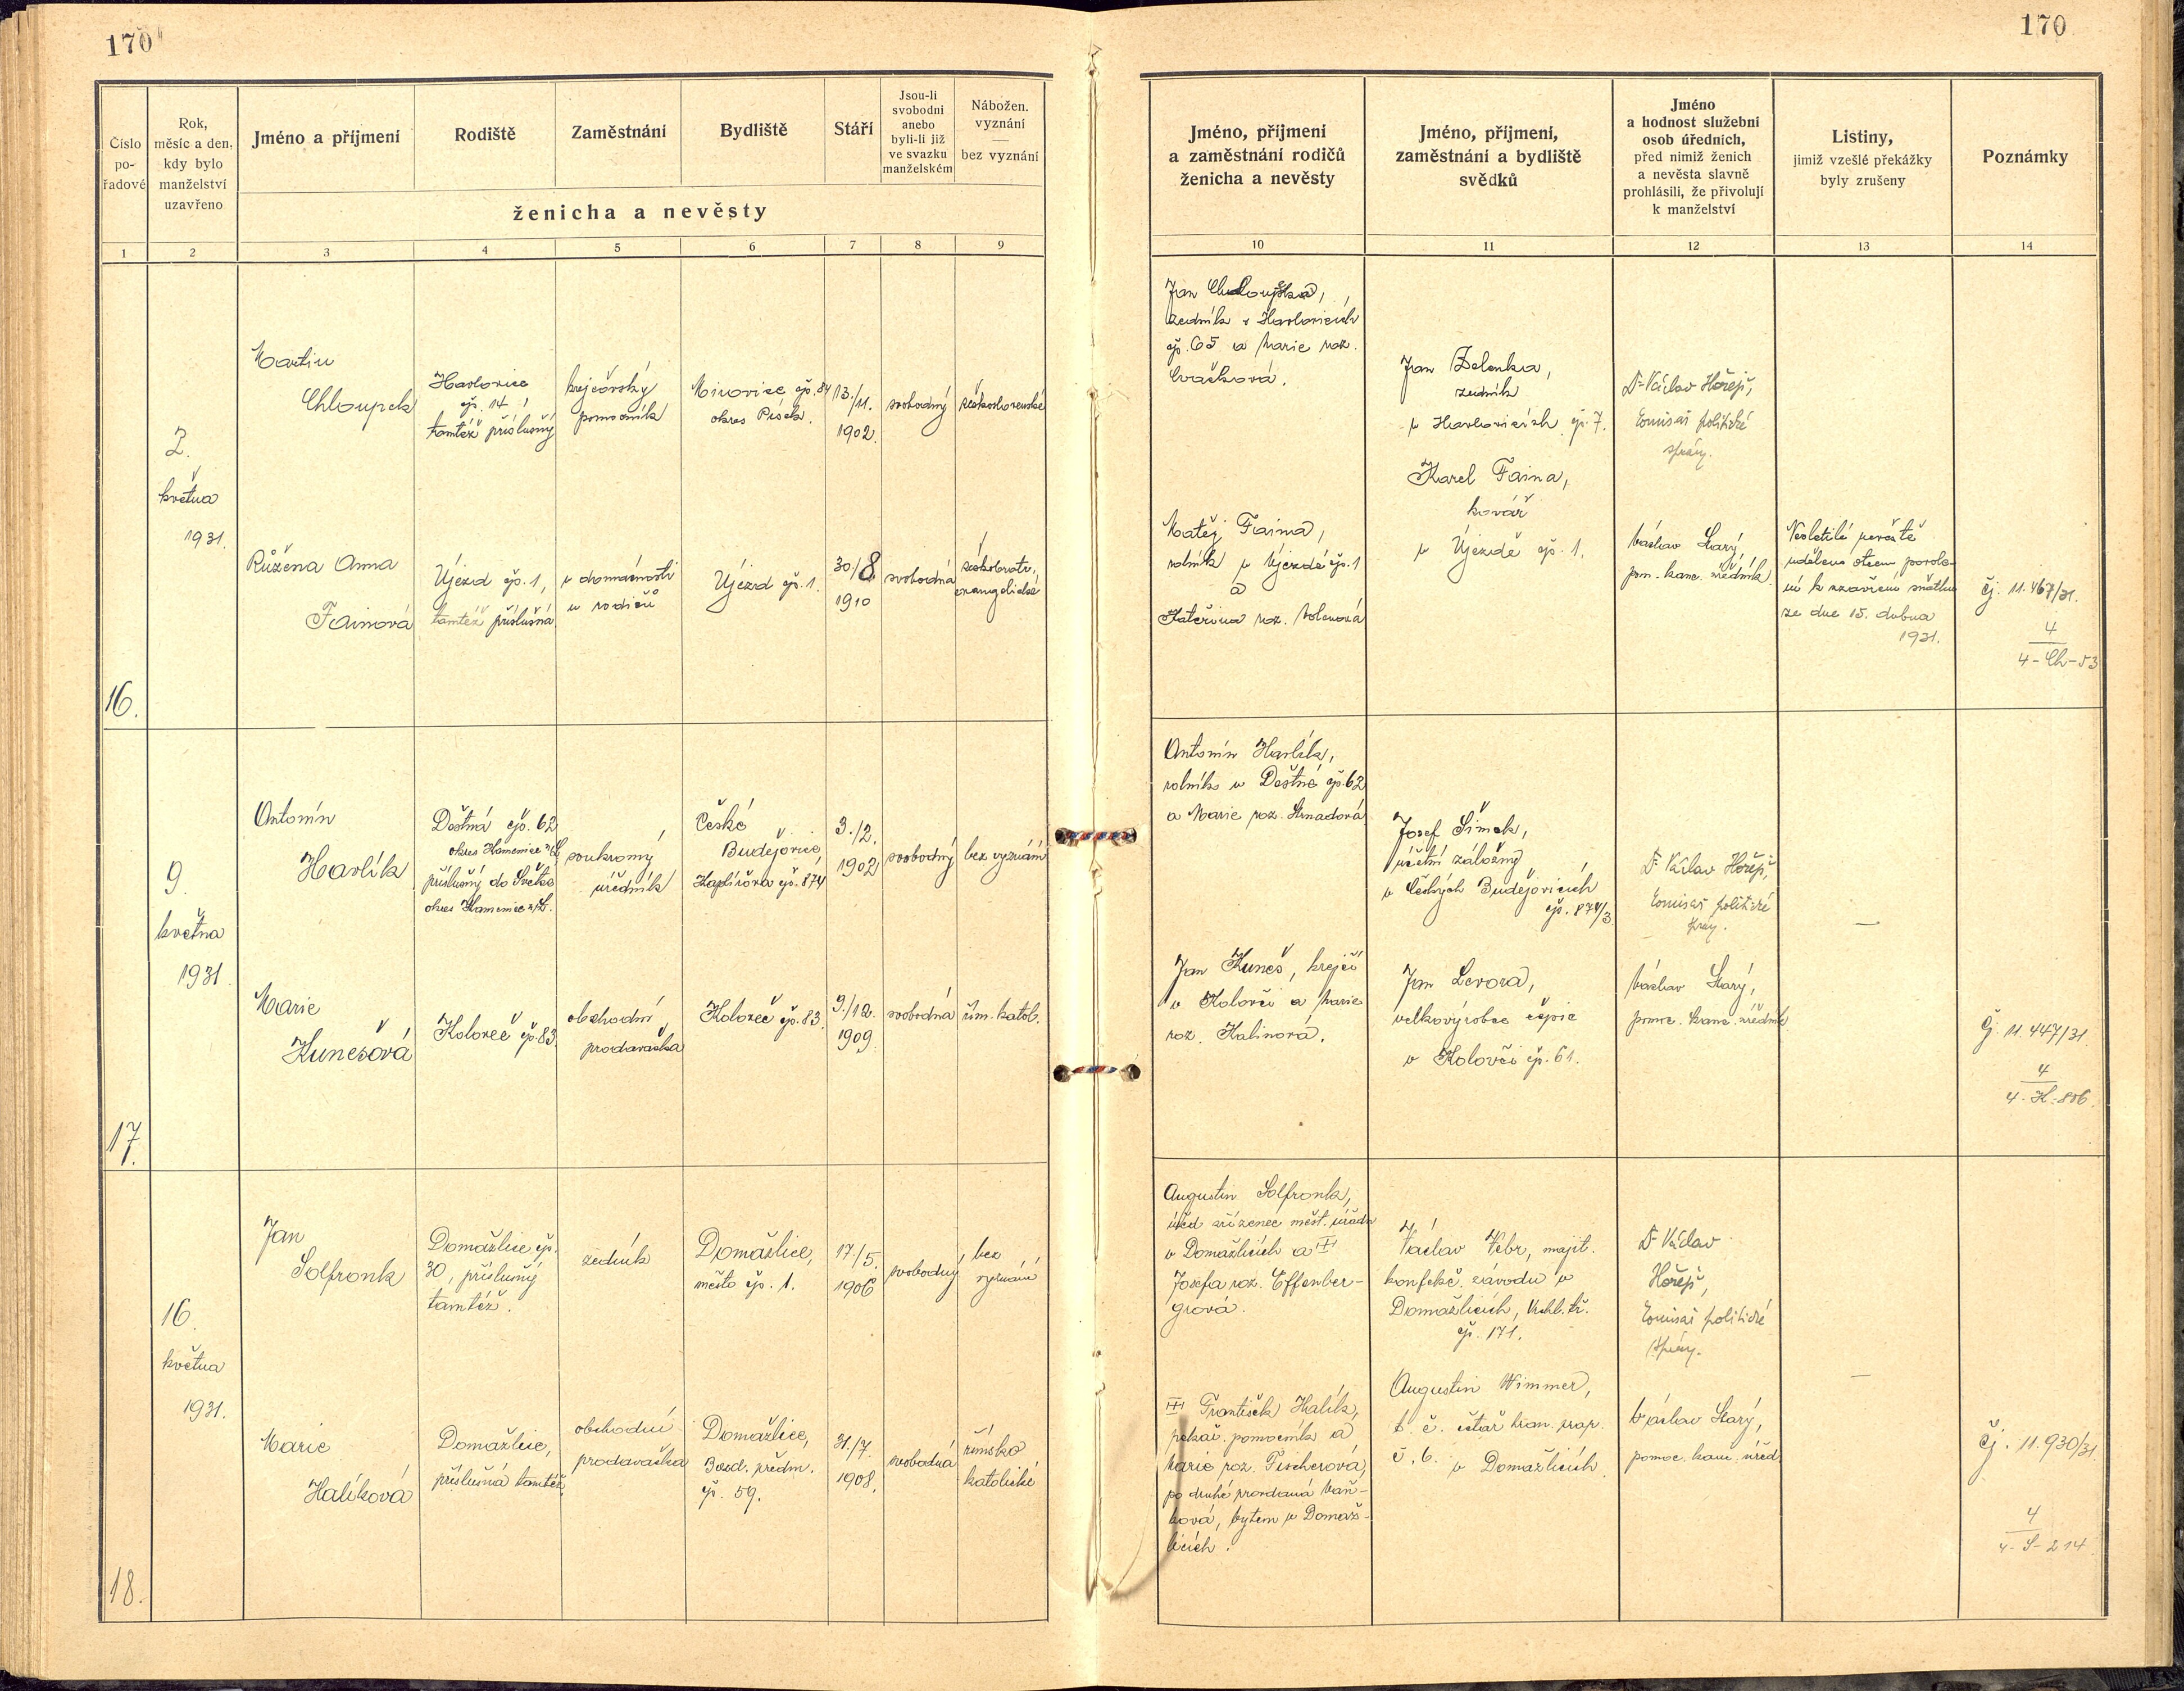 170
170
Číslo
po-
řadové
Rok,
měsíc a den,
kdy bylo
manželství
uzavřeno
Jméno a příjmení
Rodiště
Zaměstnání
Bydliště
Stáří
Jsou-li
svobodni
anebo
byli-li již
ve svazku
manželském
Nábožen.
vyznání
—
bez vyznání
ženicha a nevěsty
1
2
3
4
5
6
7
8
9
Jméno, příjmení
a zaměstnání rodičů
ženicha a nevěsty
Jméno, příjmení,
zaměstnání a bydliště
svědků
Jméno
a hodnost služební
osob úředních,
před nimiž ženich
a nevěsta slavně
prohlásili, že přivolují
k manželství
Listiny,
jimiž vzešlé překážky
byly zrušeny
Poznámky
10
11
12
13
14
16.
2.
května
1931.
Martin
Chloupek
Havlovice
čp. 14,
tamtéž příslušný
krejčovský
pomocník
Mirovice čp. 84
okres Písek.
13./11.
1902.
svobodný
československé
Jan
zedník v Havlovicích
čp. 65 a Marie roz.
Cvačková.
Jan Zelenka,
zedník
v Havlovicích čp. 7.
Karel Faina,
kovář
v Újezdě čp. 1.
Dr Václav Hořejš,
komisař politické
správy.
Růžena Anna
Fainová
Újezd čp. 1,
tamtéž příslušná
v domácnosti
u rodičů
Újezd čp. 1.
30./8.
1910
svobodná
českobratr.
evangelické
Matěj Faina,
rolník v Újezdě čp. 1
a
Kateřina roz. Volenová
Václav Starý,
pom. kanc. úředník.
Nezletilé nevěstě
uděleno otcem povole-
ní k uzavření sňatku
ze dne 15. dubna
1931.
Čj. 11.467/31.
4
4-Ch-53
17.
9.
května
1931.
Antonín
Havlík
Deštná čp. 62
okres Kamenice n/L
příslušný do Světce
okres Kamenice n/L.
soukromý
úředník
České
Budějovice
Kaplířova čp. 874
3./2.
1902
svobodný
bez vyznání
Antonín Havlík,
rolník v Deštné čp. 62
a Marie roz. Strnadová
Josef Šimek,
účetní záložny
v Českých Budějovicích
čp. 874/3
Dr Václav Hořejš,
komisař politické
správy.
—
Marie
Kunešová
Koloveč čp. 83.
obchodní
prodavačka
Koloveč čp. 83.
9./12.
1909.
svobodná
řím. katol.
Jan Kuneš, krejčí
v Kolovči a Marie
roz. Kalinová.
Jan Levora,
velkovýrobce čepic
v Kolovči čp. 61.
Václav Starý,
pomoc. kanc. úředník
Čj. 11.447/31.
4
4-H-806.
18.
16.
května
1931.
Jan
Solfronk
Domažlice čp.
30, příslušný
tamtéž.
zedník
Domažlice,
město čp. 1.
17./5.
1906
svobodný
bez
vyznání
Augustin Solfronk,
úřed. zřízenec měst. úřadu
v Domažlicích a
Josefa roz. Effenber-
grová.
Václav Vebr, majit.
konfekč. závodu v
Domažlicích, Vrchl. tř.
čp. 171.
Dr Václav
Hořejš,
komisař politické
správy.
—
Marie
Halíková
Domažlice,
příslušná tamtéž.
obchodní
prodavačka
Domažlice,
Bezd. předm.
čp. 59.
31./7.
1908.
svobodná
římsko
katolické
František Halík,
pekař. pomocník a
Marie roz. Fischerová,
po druhé provdaná Vaň-
ková, bytem v Domaž-
licích.
Augustin Wimmer,
t. č. četař hran. prap.
č. 6. v Domažlicích.
Václav Starý,
pomoc. kanc. úřed.
Čj. 11.930/31.
4
4-S-214.